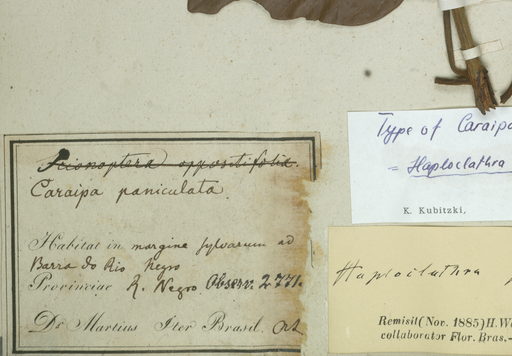 oppositifolia.
Caraipa paniculata.
Habitat in margine sylvarum ad
Barra do Rio Negro
Provinciae R. Negro. Observ. 2771.
Dr Martius Iter Brasil. Oct
Type of Caraipa
= Haploclathra
K. Kubitzki,
Haploclathra
Remisit (Nov. 1885) H. W
collaborator Flor. Bras.-